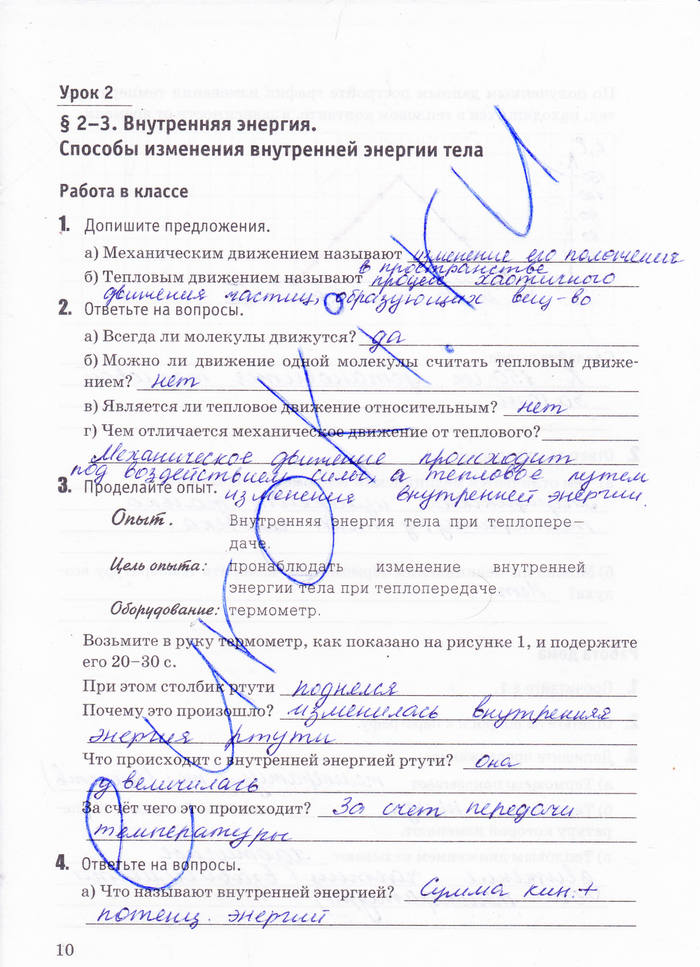 Урок 2
§ 2–3. Внутренняя энергия.
Способы изменения внутренней энергии тела
Работа в классе
1. Допишите предложения.
а) Механическим движением называют изменение его положения
в пространстве
б) Тепловым движением называют процесс хаотичного
движения частиц, образующих вещ-во
2. Ответьте на вопросы.
а) Всегда ли молекулы движутся? да
б) Можно ли движение одной молекулы считать тепловым движе-
нием? нет
в) Является ли тепловое движение относительным? нет
г) Чем отличается механическое движение от теплового?
Механическое движение происходит
под воздействием силы, а тепловое путем
изменения внутренней энергии
3. Проделайте опыт.
Опыт. Внутренняя энергия тела при теплопере-
даче.
Цель опыта: пронаблюдать изменение внутренней
энергии тела при теплопередаче.
Оборудование: термометр.
Возьмите в руку термометр, как показано на рисунке 1, и подержите
его 20–30 с.
При этом столбик ртути поднялся
Почему это произошло? изменилась внутренняя
энергия ртути
Что происходит с внутренней энергией ртути? Она
увеличилась
За счёт чего это происходит? За счет передачи
температуры
4. Ответьте на вопросы.
а) Что называют внутренней энергией? Сумма кин. +
потенц. энергий
10